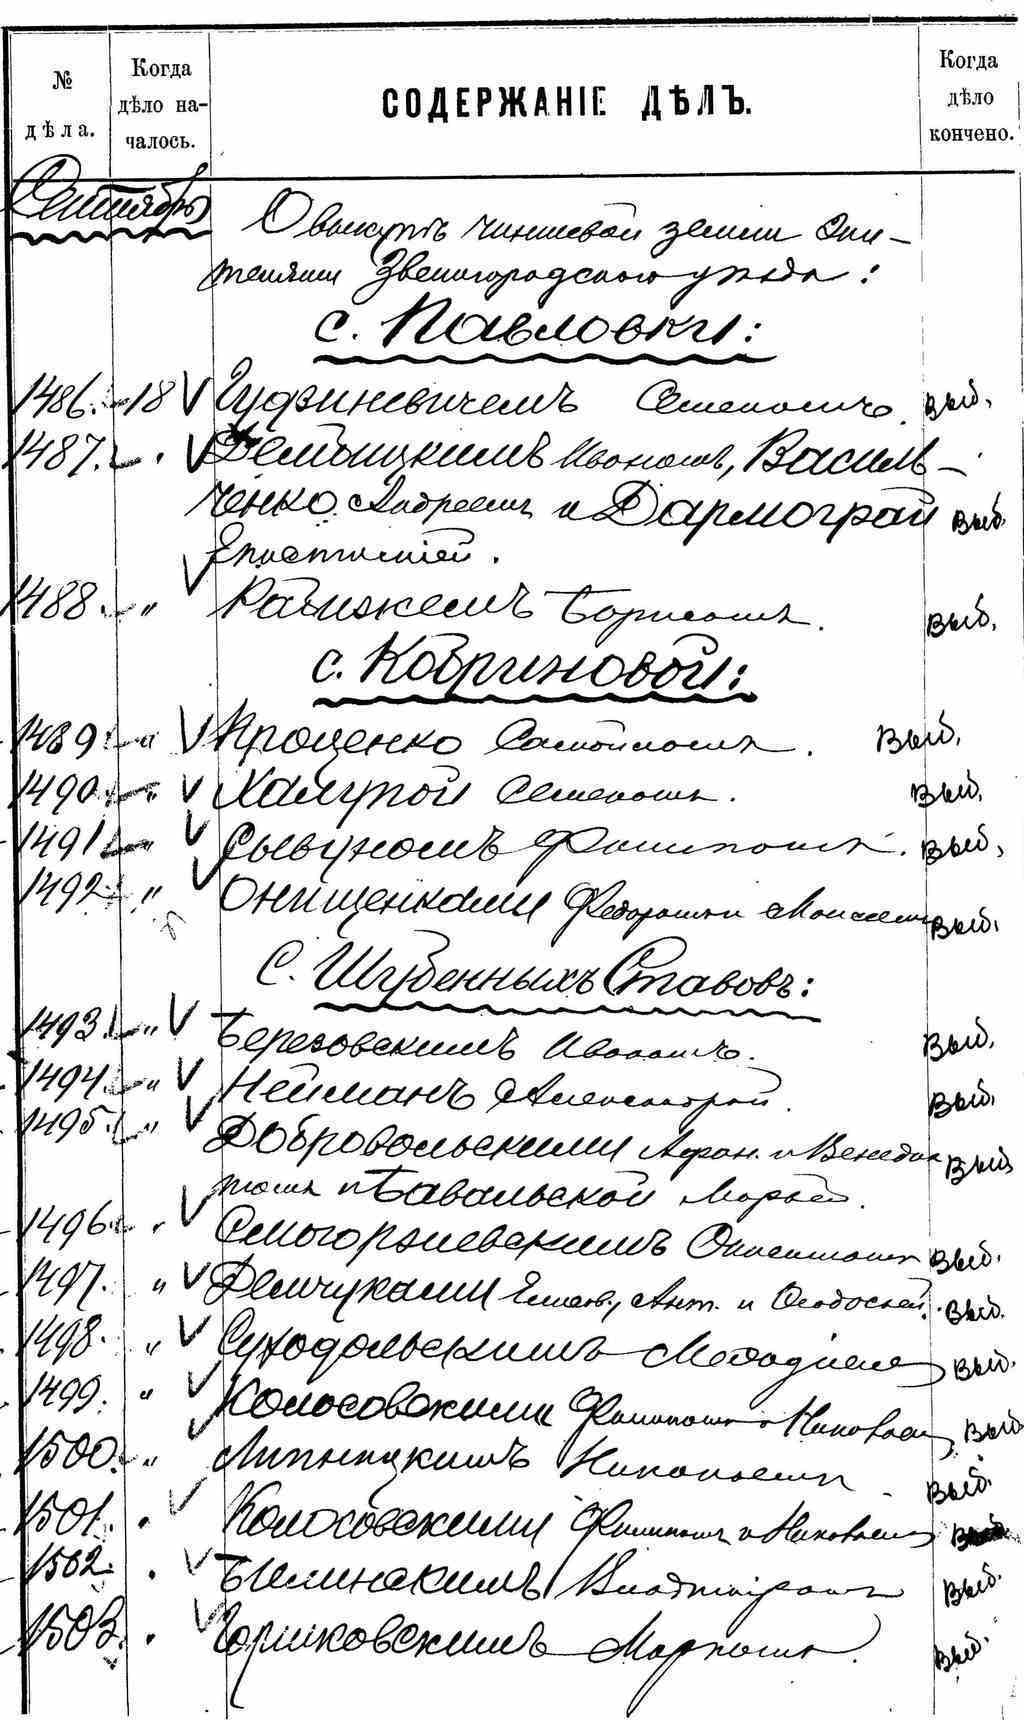 № дѣла.
Когда дѣло началось.
СОДЕРЖАНІЕ ДѢЛЪ.
Когда дѣло кончено.
Сентябрь
О выкупѣ чиншевой земли жи-
телями Звенигородского уѣзда:
с. Павловки:
1486. 18 Гудзиневичемъ Семеномъ. Выб.
1487. Иваномъ, Василь-
ченко Андреемъ и Дармограй Выб.
Епистиміей.
1488. " Борисомъ. Выб.
с. Кобриновой:
1489 " Проценко Самойломъ. Выб.
1490. " Халупой Семеномъ. Выб.
1491 " Сывуномъ Филипомъ. Выб.
1492 " Онищенками Федоромъ и Моисеемъ Выб.
С. Шубенныхъ Ставовъ:
1493. " Березовскимъ Иваномъ. Выб.
1494. " Нейманъ Александрой. Выб.
1495. " Добровольскими Афан. и Венедик Выб.
томъ и Бавальской Марьей.
1496 Смогоржевскимъ Выб.
1497. " Демчуками Ант. и Ѳеодосіей. Выб.
1498. " Суходольскимъ Меѳодіемъ Выб.
1499. " Колосовскими Филипомъ и Николаемъ Выб.
1500. " Липницкимъ Николаемъ. Выб.
1501. Колосовскими Филипомъ и Николаемъ
1502. Былинскимъ Владиміромъ Выб.
1503. Горшковскимъ Маркомъ. Выб.